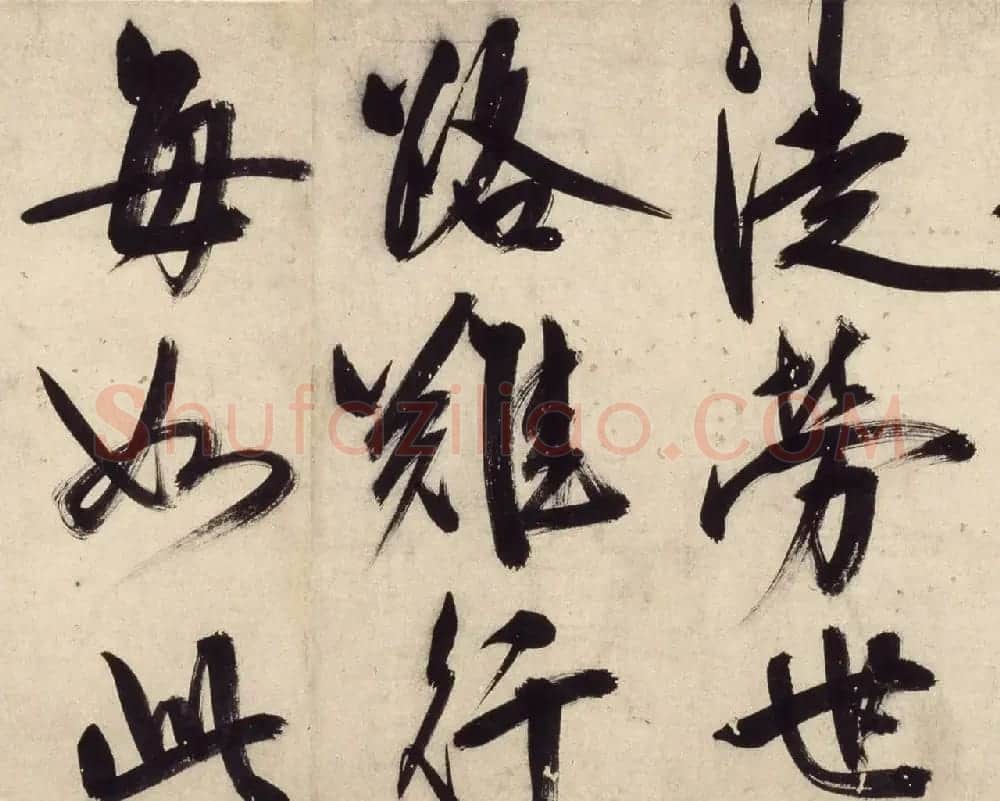 徒劳世
路難行
每如此
Shufaziliao.COM